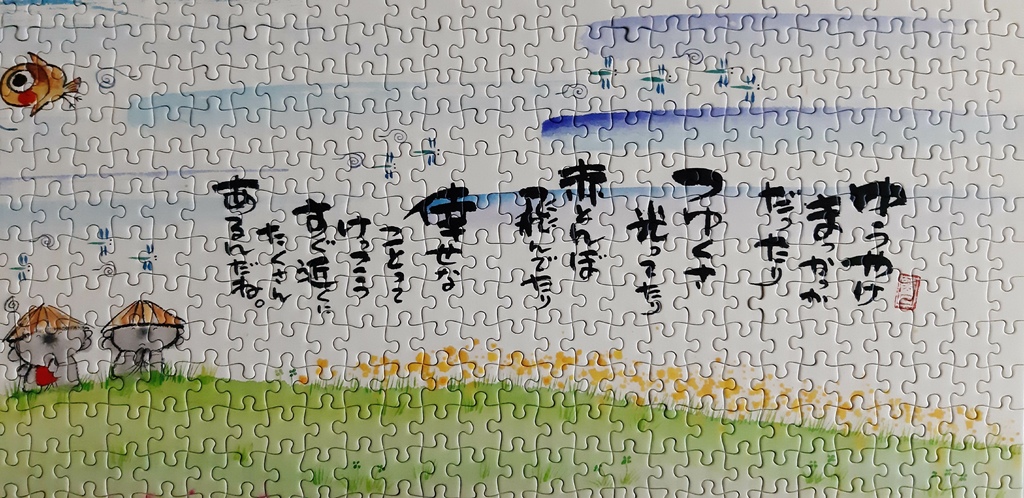 ゆうやけ
まっかっか
だったり
つゆくさ
光ってたり
赤とんぼ
飛んでたり
幸せな
ことって
けっこう
すぐ近くに
たくさん
あるんだね。